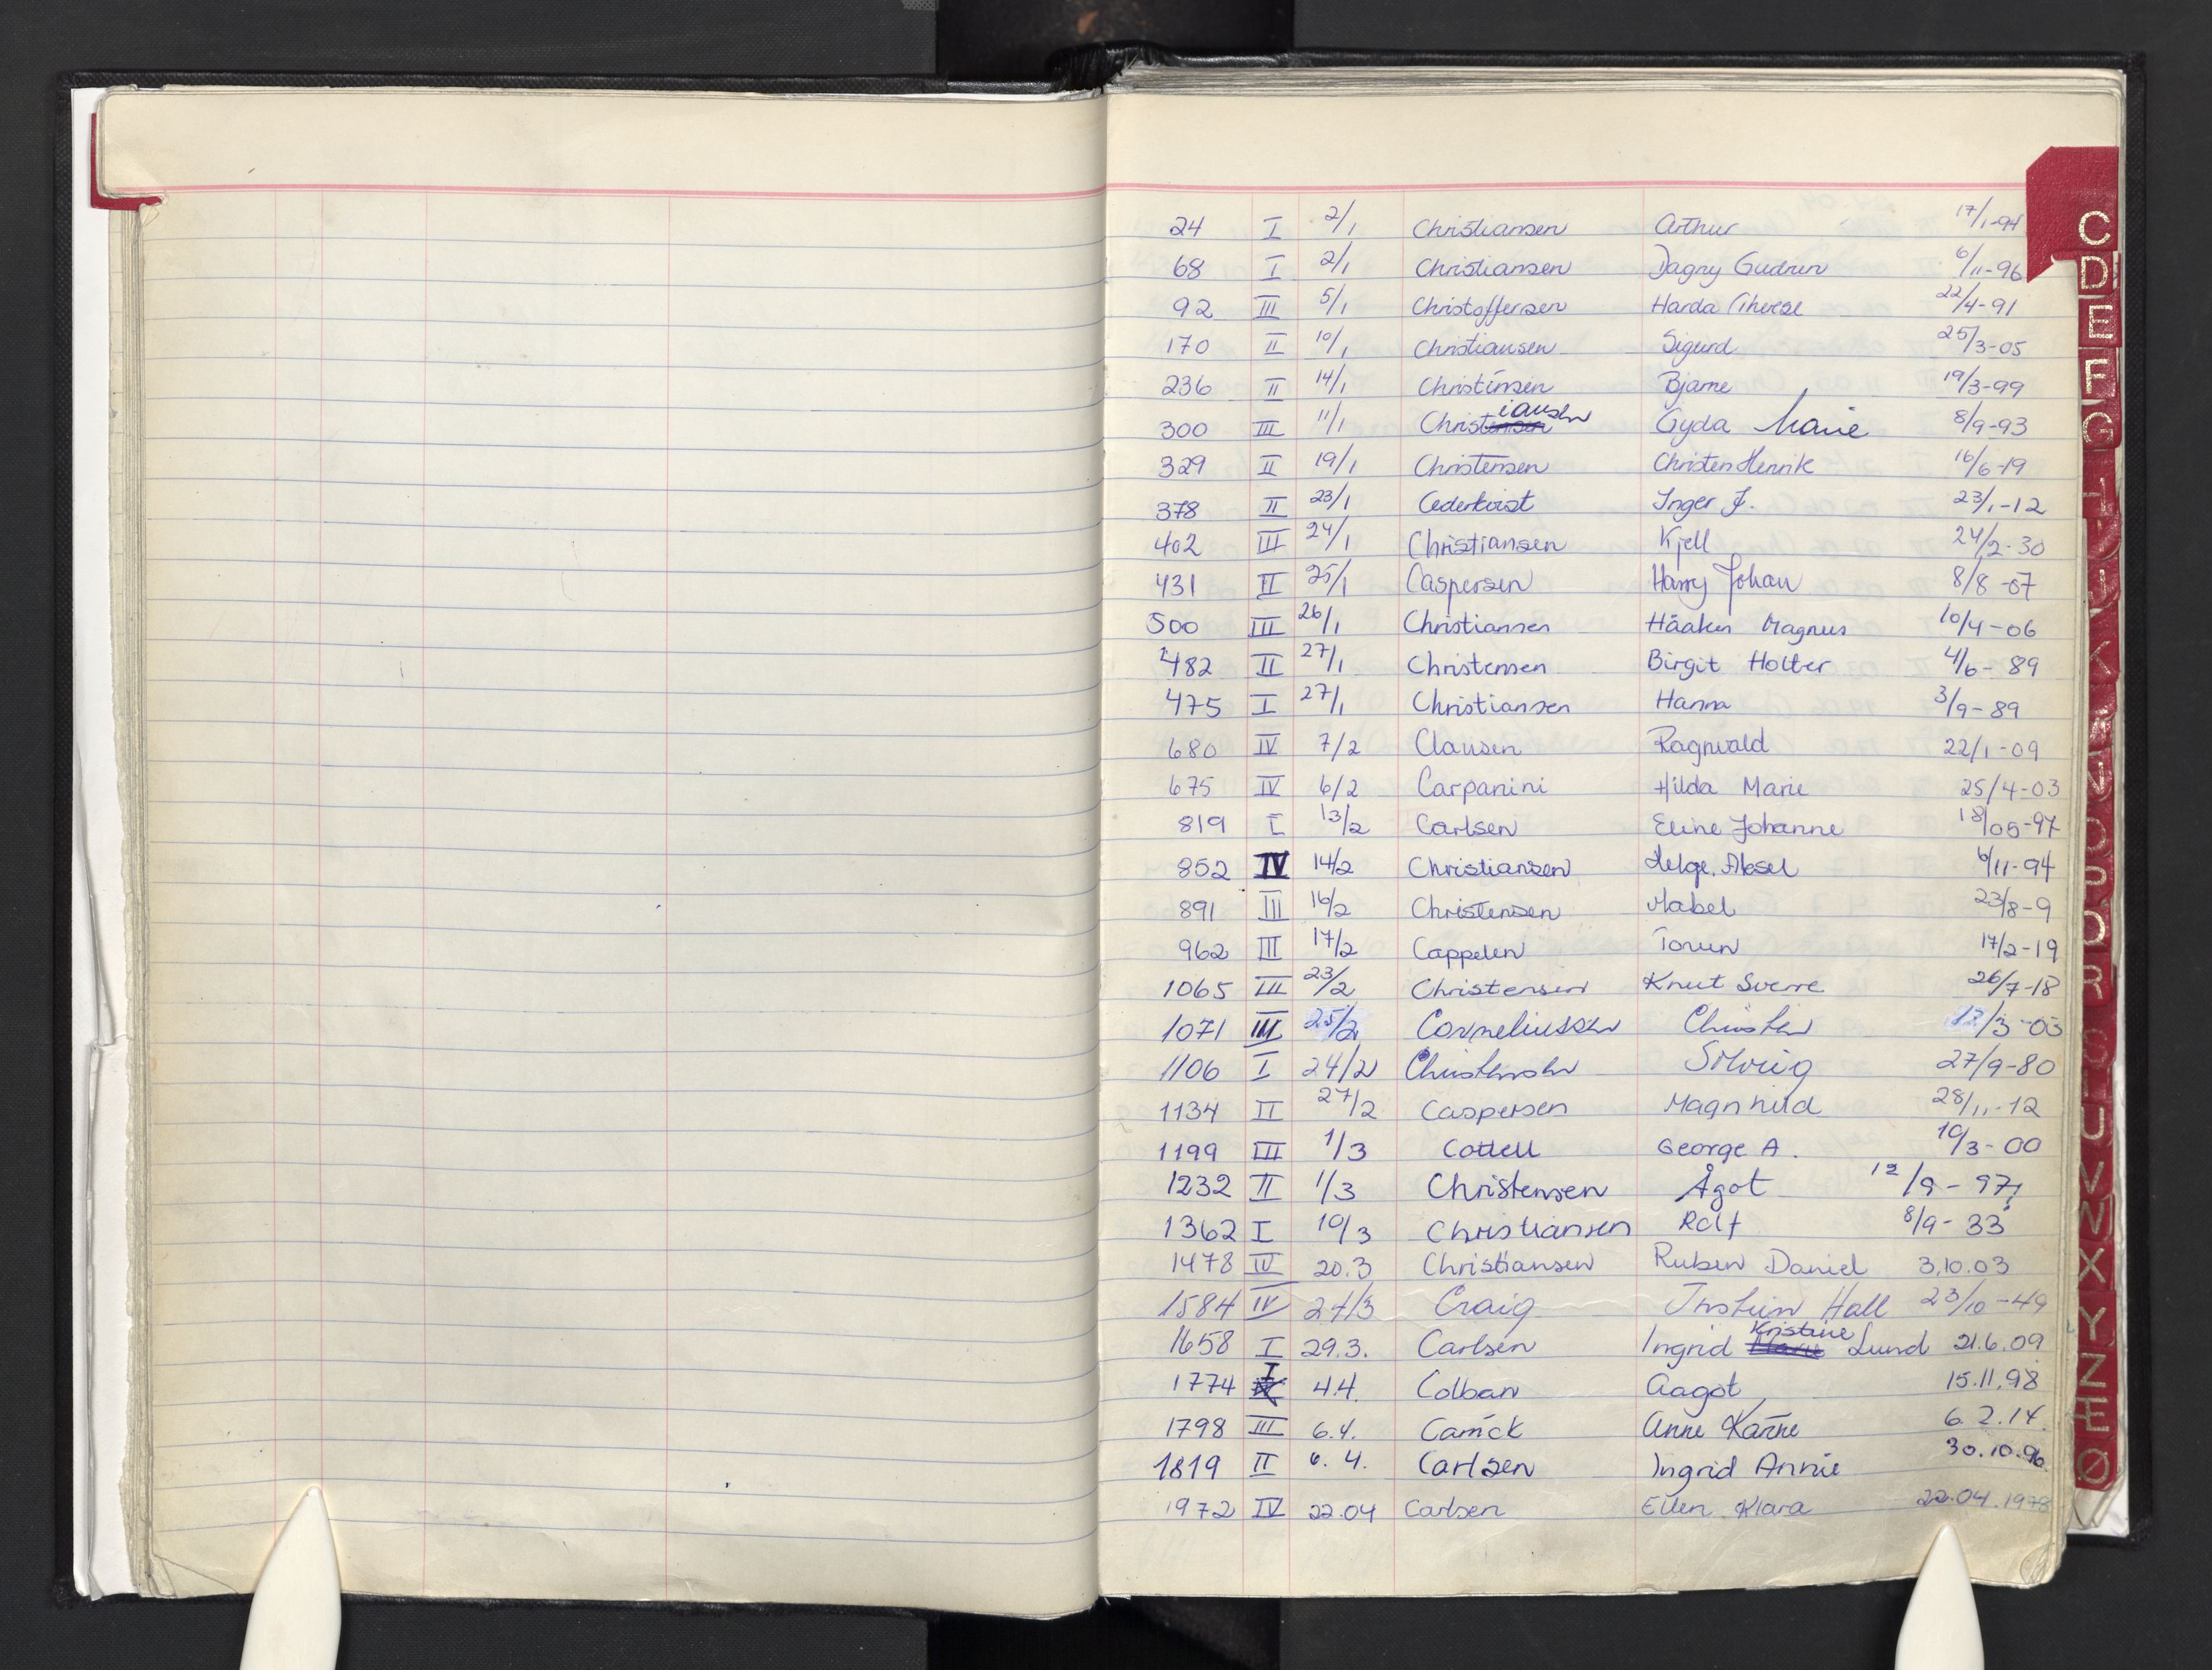 24 I 2/1 Christiansen Arthur 17/1-94
68 I 2/1 Christiansen Dagny Gudrun 6/11-96
92 III 5/1 Christoffersen Harda Therese 22/4-91
170 II 10/1 Christiansen Sigurd 25/3-05
236 II 14/1 Christinsen Bjarne 19/3-99
300 III 11/1 Christiansen Gyda Marie 8/9-93
329 II 19/1 Christensen Christen Henrik 16/6-19
378 II 23/1 Cederkvist Inger J. 23/1-12
402 III 24/1 Christiansen Kjell 24/2-30
431 II 25/1 Caspersen Harry Johan 8/8-07
500 III 26/1 Christiansen Håaken Magnus 10/4-06
482 II 27/1 Christensen Birgit Holter 4/6-89
475 I 27/1 Christiansen Hanna 3/9-89
680 IV 7/2 Clausen Ragnvald 22/1-09
675 IV 6/2 Carpanini Hilda Marie 25/4-03
819 I 13/2 Carlsen Eline Johanne 18/05-97
852 IV 14/2 Christiansen Helge. Aksel 6/11-94
891 III 16/2 Christensen Mabel 23/8-9
962 III 17/2 Cappelen Torun 17/2-19
1065 III 23/2 Christensen Knut Sverre 26/7-18
1071 III 25/2 Corneliussen Christen 12/3-03
1106 I 24/2 Christensen Solveig 27/9-80
1134 II 27/2 Caspersen Magnhild 28/11-12
1199 III 1/3 Cottell George A. 10/3-00
1232 II 1/3 Christensen Ågot 12/9-97
1362 I 10/3 Christiansen Rolf 8/9-33
1478 IV 20.3 Christiansen Ruben Daniel 3.10.03
1584 IV 27/3 Craig Hall 23/10-49
1658 I 29.3. Carlsen Ingrid Kristine Lund 21.6.09
1774 I 4.4. Colban Aagot 15.11.98
1798 III 6.4. Carrick Anne Karine 6.2.14.
1819 II 6.4. Carlsen Ingrid Annie 30.10.96.
1972 IV 22.04 Carlsen Ellen Klara 22.04.1978
C
D
E
F
G
H
I
J
K
M
N
O
P
R
U
V
X
Y
Z
Æ
Ø